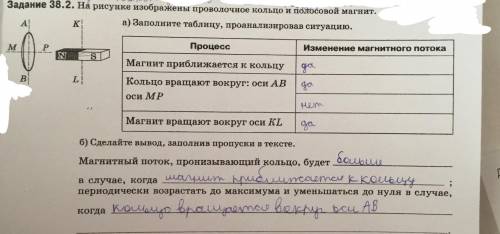 Задание 38.2. На рисунке изображены проволочное кольцо и полосовой магнит.
а) Заполните таблицу, проанализировав ситуацию.
A
K
M
P
N
S
B
L
Процесс
Изменение магнитного потока
Магнит приближается к кольцу
да
Кольцо вращают вокруг: оси AB
да
оси MP
нет
Магнит вращают вокруг оси KL
да
б) Сделайте вывод, заполнив пропуски в тексте.
Магнитный поток, пронизывающий кольцо, будет больше
в случае, когда магнит приближается к кольцу ;
периодически возрастать до максимума и уменьшаться до нуля в случае,
когда кольцо вращается вокруг оси AB